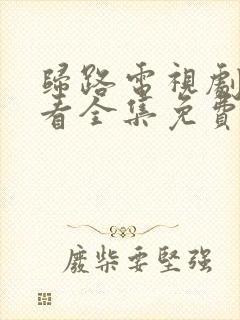 歸路電視劇
看全集免費
廢柴要堅強